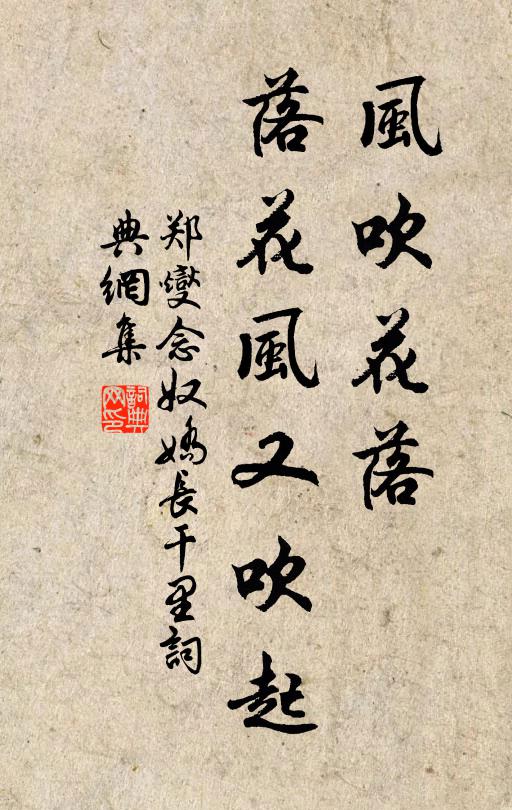 風吹花落
落花風又吹起
郑燮念奴嬌長干里詞
典網集
詞典
网印